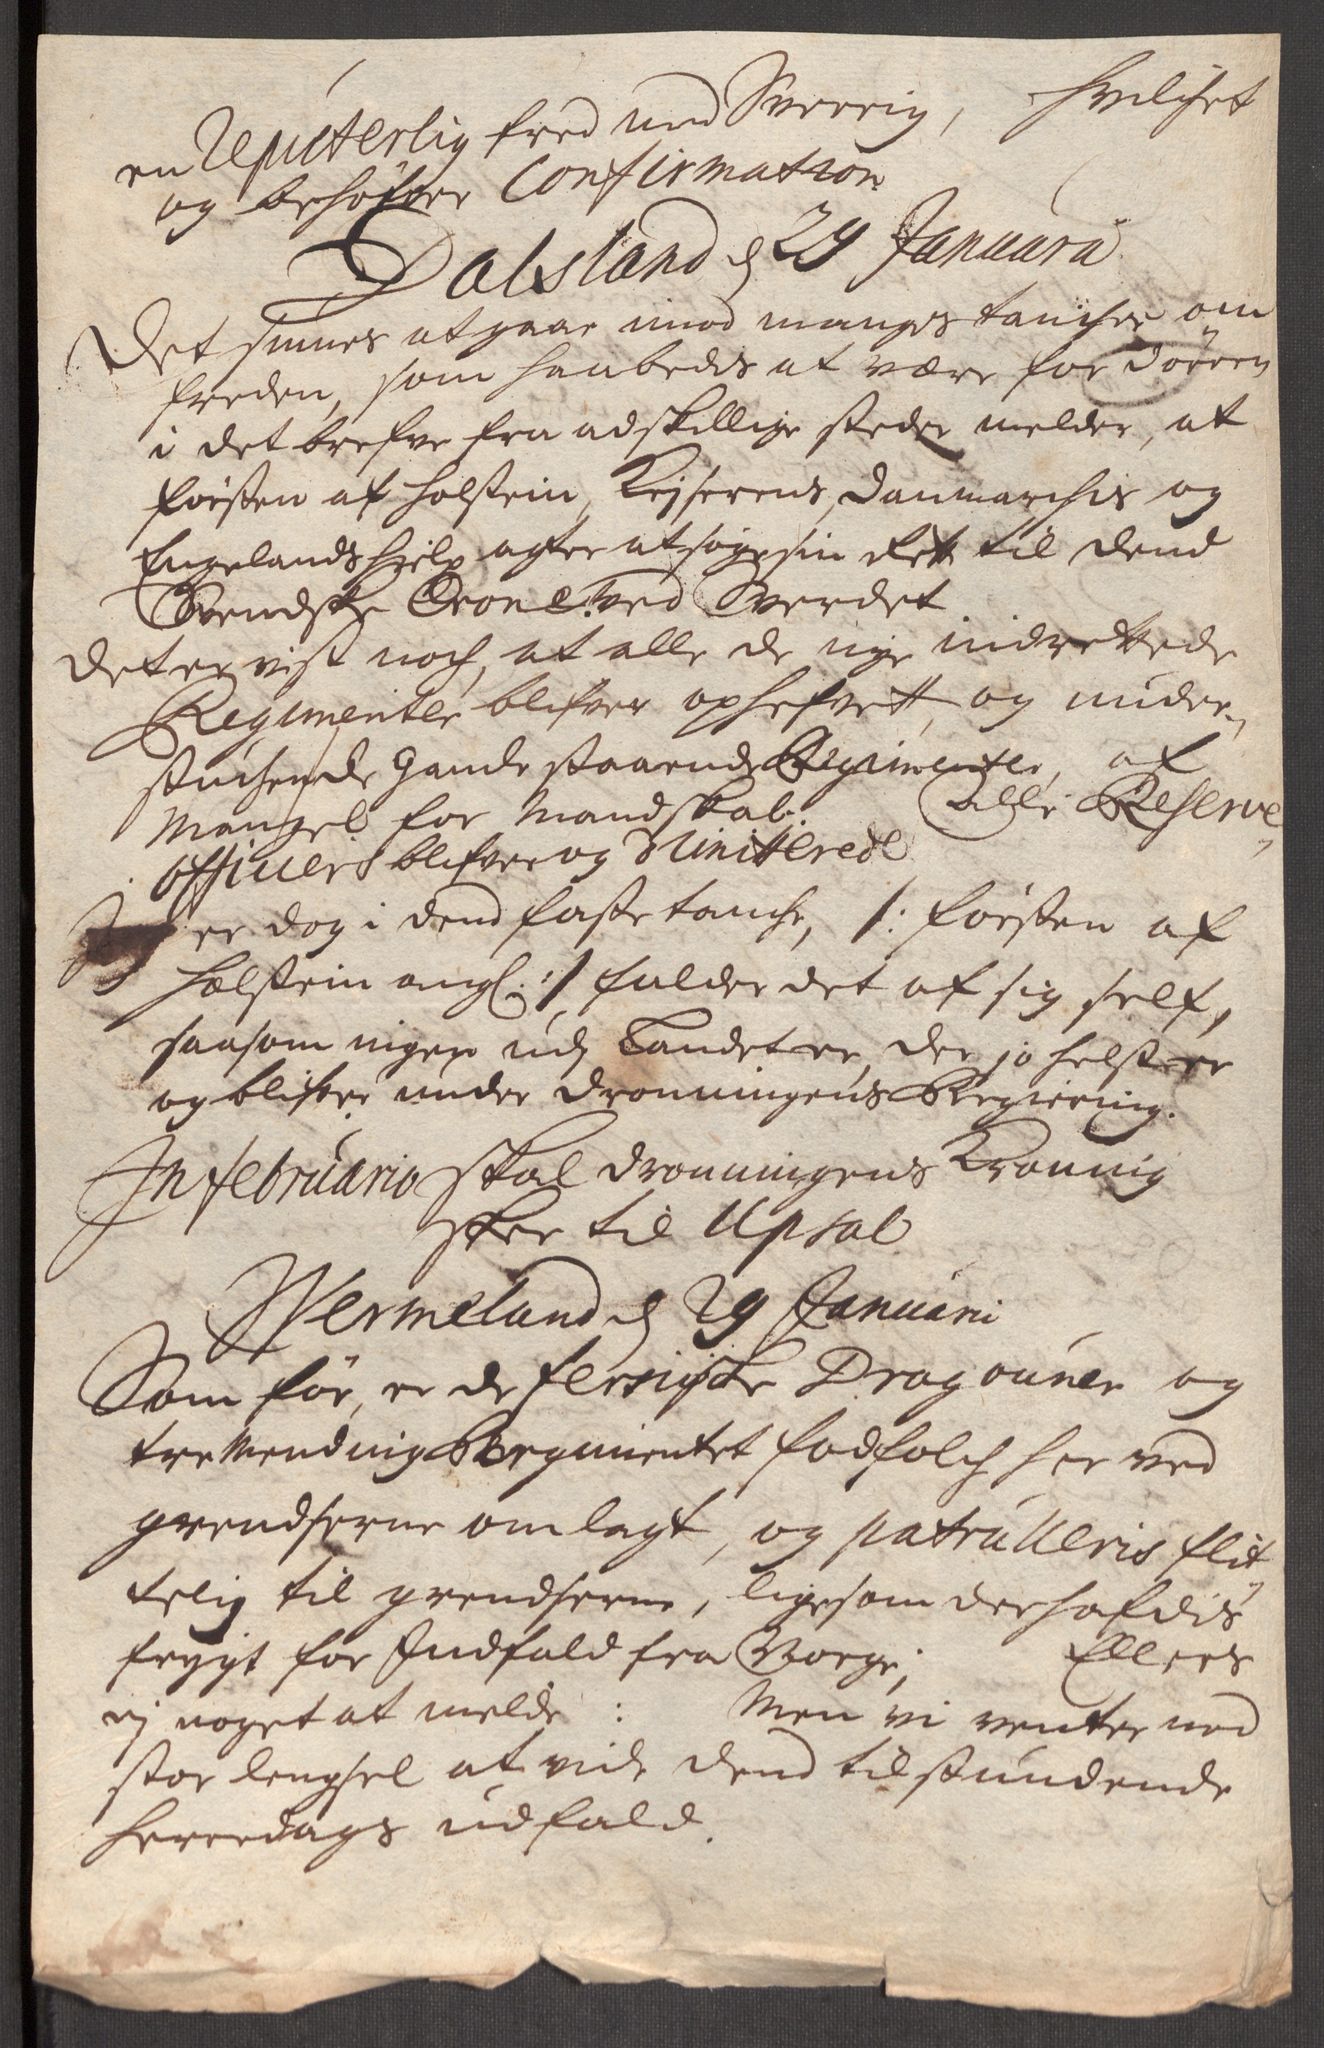 en Reputerlig fred med Sverrig, hvilchet
og behøfver Confirmation
Dalsland d 29 Januarii
Det siunes at gaae imod manges tancher om
freden, som haabedes at være for døren
i det brefve fra adskillige steder melder, at
førsten af Holstein, Keyserens, Danmarchis og
Engelands hielp agter at søge sin Rett til dend
Svendske Crone ved Sverdet
Det er vist noch, at alle de nye indrettede
Regimenter blifver ophefvett, og under„
stuchende staaende Regimenter, af
Mangel for Mandskab. Alle Reserve
officiers blifver og
Jeg er dog i dend faste tanche, /: førsten af
Holstein angl: :/ falder det af sig self,
saasom ingen udj Landet er, der jo helst er
og blifver under Dronningens Regiering.
In februario skal Dronningens Kroning
skee til Upsal
Wermeland d 29 Januarii
Som før, er de fersiske Dragouner og
tremendnings Regimentet fodfolch her ved
grendserne omlagt, og patrulleris flit
telig til grendserne, ligesom der hafdis
frygt for Indfald fra Norge; Ellers
ej noget at melde: Men vi venter med
stor lengsel at vide dend tilstundende
Herredags udfald.